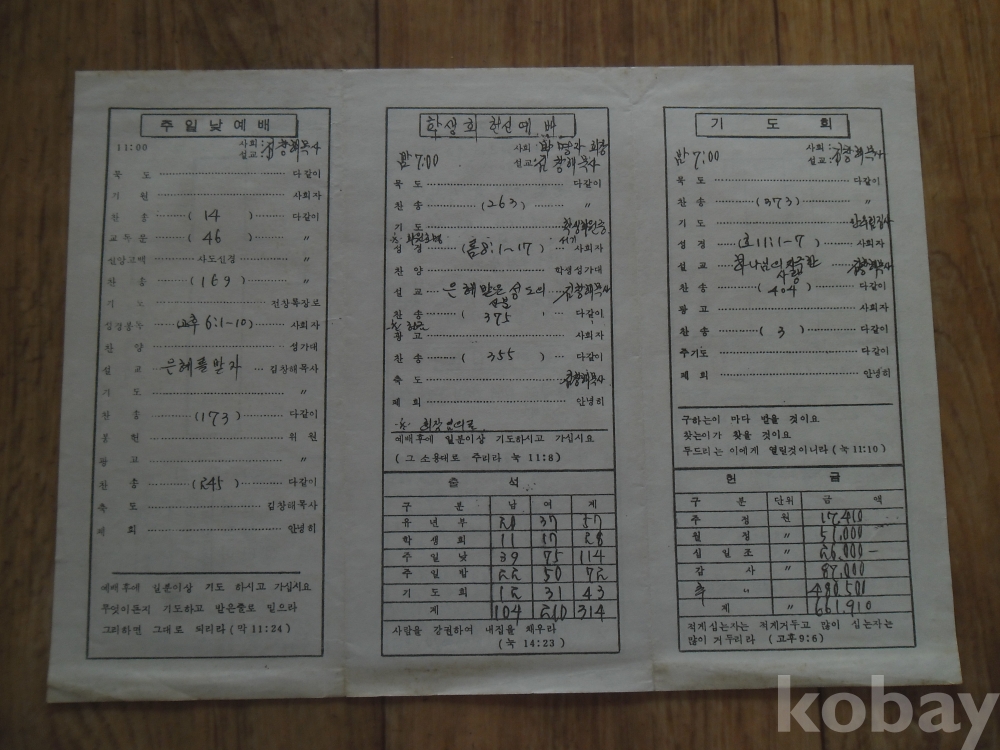 주일낮예배
11:00 사회:
설교:김창해목사
묵 도 다같이
기 원 사회자
찬 송 (14) 다같이
교독문 (46) 〃
신앙고백 사도신경 〃
찬 송 (169) 〃
기 도 전창록장로
성경봉독 (고후 6:1-10) 사회자
찬 양 성가대
설 교 은혜를 받자 김창해목사
기 도 〃
찬 송 (173) 다같이
봉 헌 위 원
광 고 〃
찬 송 (245) 다같이
축 도 김창해목사
폐 회 안녕히
예배후에 일분이상 기도 하시고 가십시요
무엇이든지 기도하고 받은줄로 믿으라
그리하면 그대로 되리라 (막 11:24)
학생회 헌신예배
밤 7:00 사회: 회장
설교: 김창해목사
묵 도 다같이
찬 송 (263) 〃
기 도
성 경 (롬 8:1~17) 사회자
찬 양 학생성가대
설 교 은혜 받은 성도의 김창해목사
찬 송 (375) 다같이
광 고 사회자
찬 송 (355) 다같이
축 도 김창해목사
폐 회 안녕히
예배후에 일분이상 기도하시고 가십시요
(그 소용대로 주리라 눅 11:8)
출 석
구 분 남 여 계
유 년 부 20 37 57
학 생 회 11 17 28
주 일 낮 39 75 114
주 일 밤 22 50 72
기 도 회 12 31 43
계 104 210 314
사람을 강권하여 내집을 채우라
(눅 14:23)
기 도 회
밤 7:00 사회:
설교: 김창해목사
묵 도 다같이
찬 송 (373) 〃
기 도
성 경 (호 11:1-7) 사회자
설 교 하나님의 지극한 사랑 김창해목사
찬 송 (404) 다같이
광 고 사회자
찬 송 (3) 다같이
주기도 다같이
폐 회 안녕히
구하는이 마다 받을 것이요
찾는이가 찾을 것이요
두드리는 이에게 열릴것이니라 (눅 11:10)
헌 금
구 분 단위 금 액
주 정 원 17,410
월 정 〃 51,000
십 일 조 〃 26,000-
감 사 〃 87,000
〃 480,501
계 〃 661,910
적게심는자는 적게거두고 많이 심는자는
많이 거두리라 (고후 9:6)
kobay